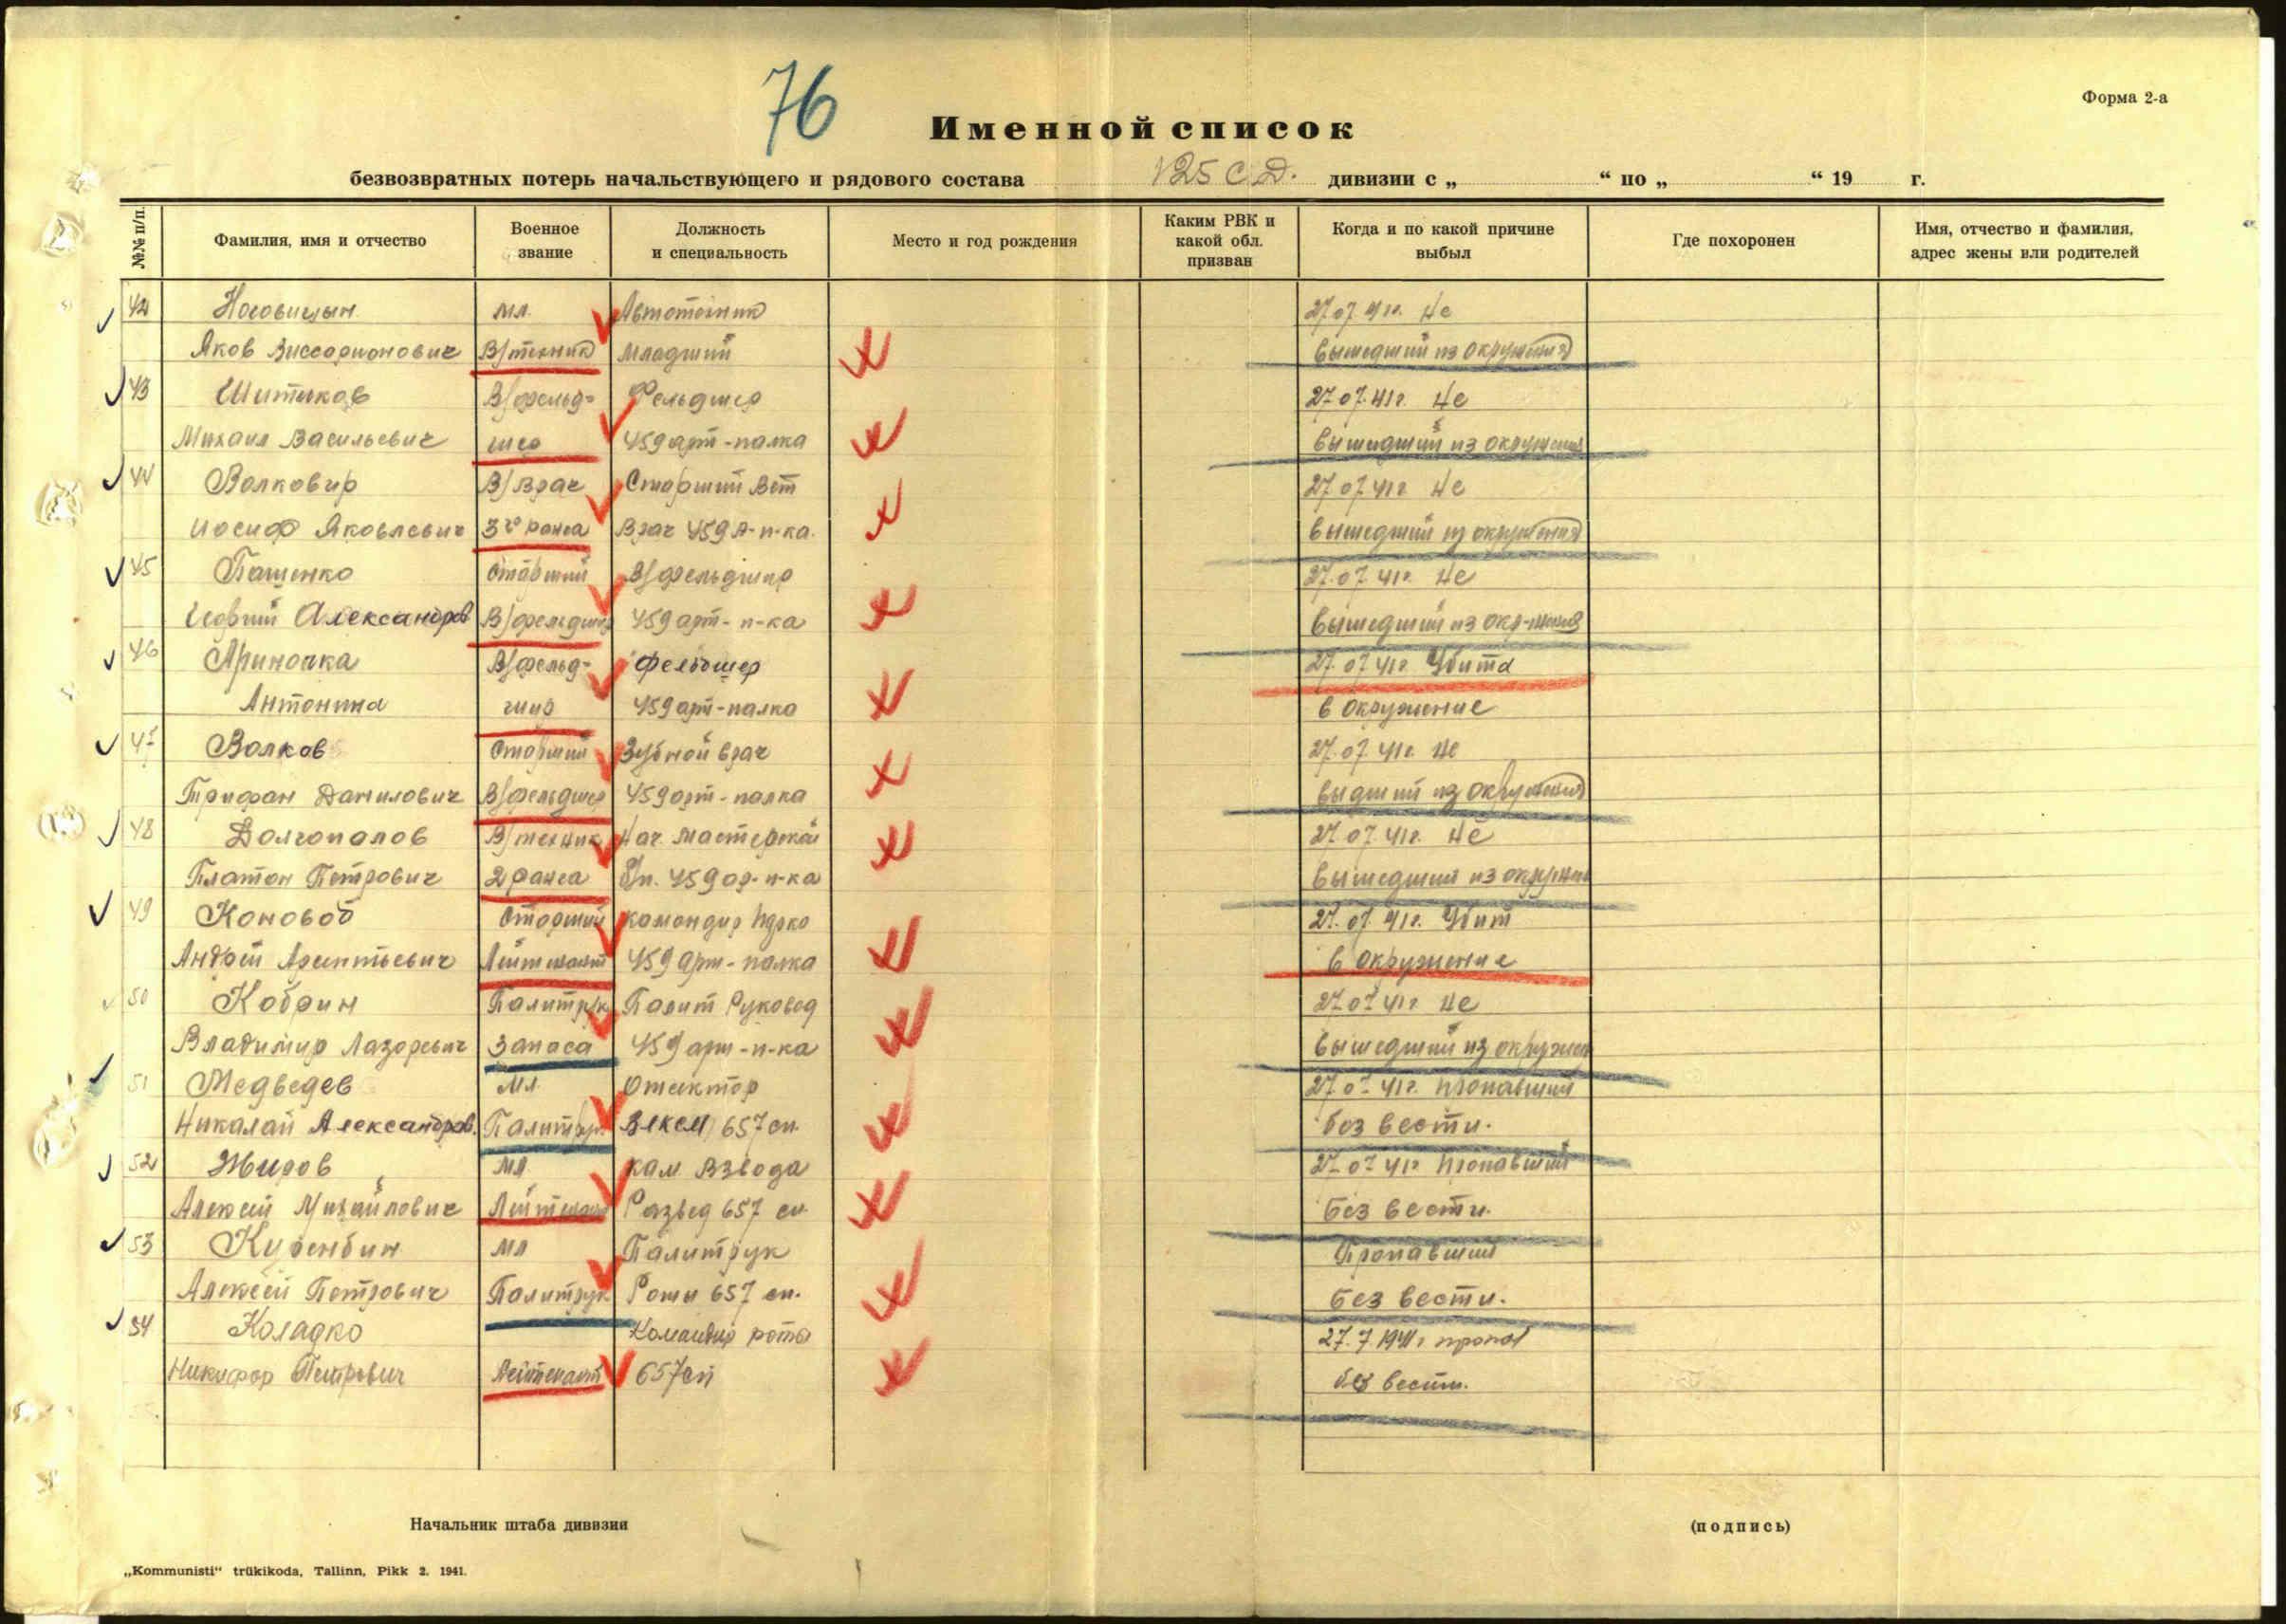 76
Форма 2-а
Именной список
безвозвратных потерь начальствующего и рядового состава 125 С.Д. дивизии с „ “ по „ “ 19 г.
№№ п/п. Фамилия, имя и отчество Военное звание Должность и специальность Место и год рождения Каким РВК и какой обл. призван Когда и по какой причине выбыл Где похоронен Имя, отчество и фамилия, адрес жены или родителей
42 Носовицын мл. Автотехник 27.07.41г. Не
Яков Виссарионович В/техник младший вышедший из окружения
43 Шитиков В/фельд- Фельдшер 27.07.41г. Не
Михаил Васильевич шер 459 арт-палка вышедший из окружения
44 Волковир В/врач Старший Вет 27.07.41г. Не
Иосиф Яковлевич 3го ранга Врач 459 А-п-ка. вышедший из окружения
45 Пащенко Старший В/фельдшер 27.07.41г. Не
Георгий Александров В/фельдшер 459 арт-п-ка вышедший из окр-жения
46 Ариночка В/фельд- фельдшер 27.07.41г. Убита
Антонина 459 арт-палка в окружение
47 Волков Старший Зубной врач 27.07.41г. Не
Трифан Данилович В/фельдшер 459 арт-палка выдший из окружения
48 Долгопалов В/техник Нач. мастерской 27.07.41г. Не
Платон Петрович 2 ранга б/п. 459 ар-п-ка вышедший из окружен
49 Коновод Старший командир 27.07.41г. Убит
Андрей Лейтенант 459 арт-палка в окружение
50 Кобрин Палитрук Палит Руковод 27.07.41г. Не
Владимир Лазоревич Запаса 459 арт-п-ка вышедший из окружен
51 Медведев мл. 27.07.41г. Пропавший
Никалай Александров. Палитрук ВЛКСМ 657 сп. без вести.
52 Жиров мл. кам. Взвода 27.07.41г. Пропавший
Алексей Михайлович Лейтенант Развед 657 сп. Без вести.
53 Куренбин мл Палитрук Пропавший
Алексей Петрович Палитрук Роты 657 сп. Без вести.
54 Коладко Командир роты 27.7.1941г пропал
Никифор Петрович Лейтенант 657 сп без вести.
Начальник штаба дивизии
(подпись)
„Kommunisti“ trükikoda, Tallinn, Pikk 2. 1941.